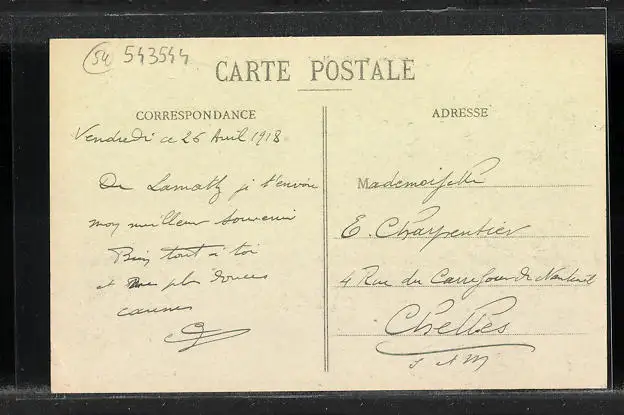 54 543544
CARTE POSTALE
CORRESPONDANCE
ADRESSE
Vendredi ce 26 Avril 1918
De Lamath je t'envoie
mon meilleur souvenir
Bien tout à toi
et me plus douces
caresses
Mademoiselle
E. Charpentier
4 Rue du Carrefour de Nanteuil
Chelles
S et M